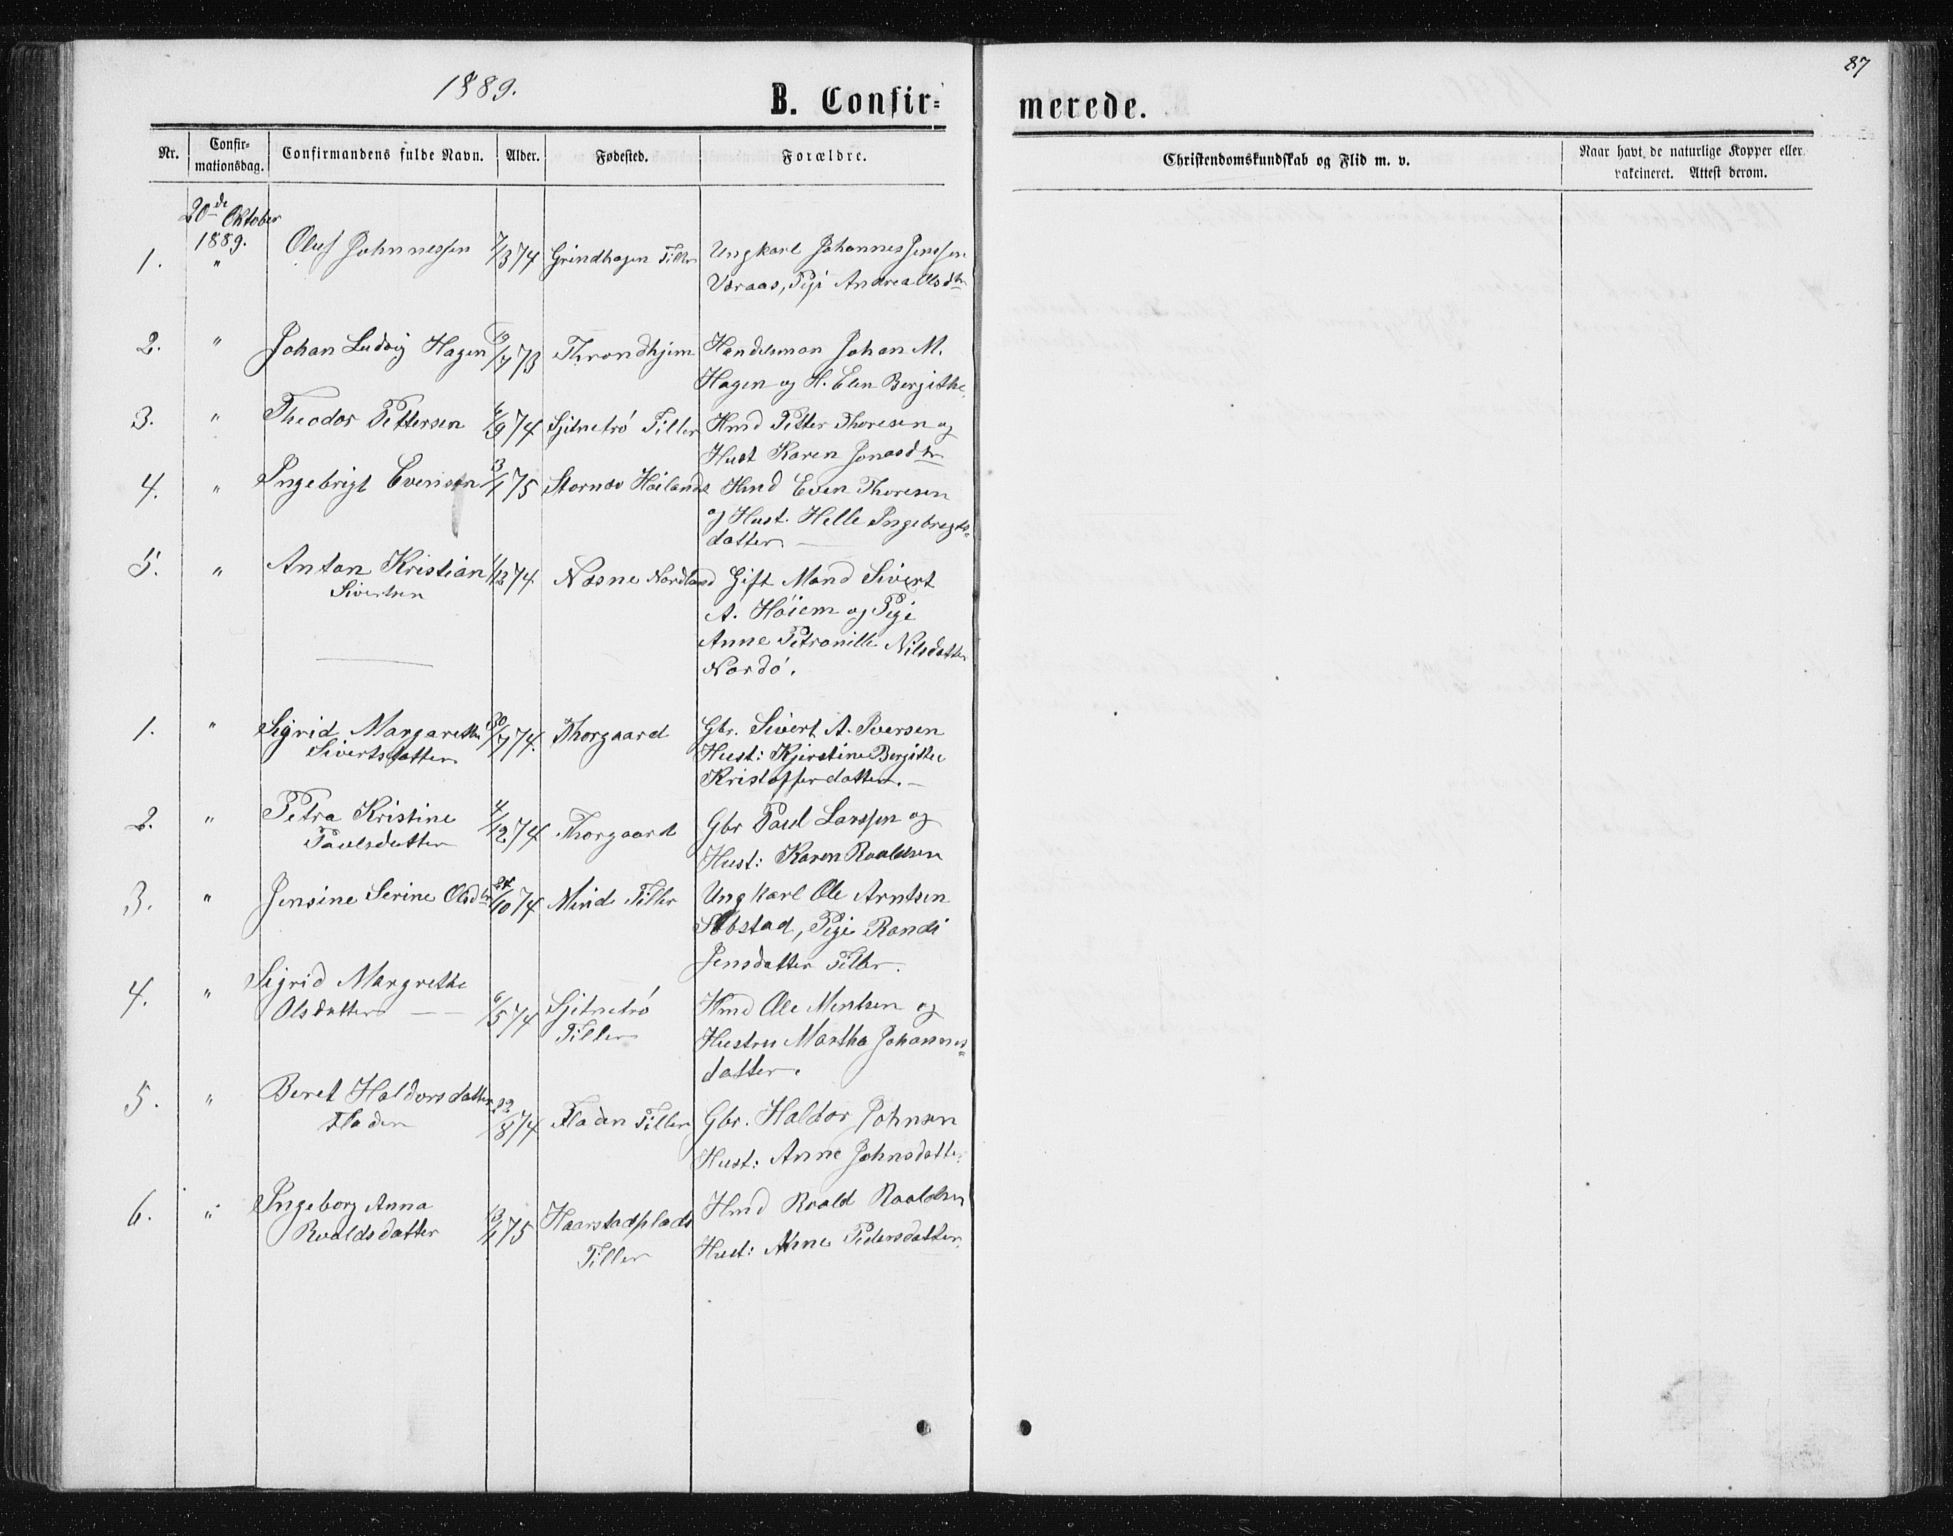 87
1889.
B. Confir-
merede.
Nr. Confir-mationsdag. Confirmandens fulde Navn. Alder. Fødested. Forældre.
Christendomskundskab og Flid m. v. Naar havt de naturlige Kopper eller vakcineret. Attest derom.
20de Oktober
1889.
1. " Oluf Johnnessen 7/3 74 Grindhagen Tiller Ungkarl Johannes Jenssen
Pigi Andrea Olsdtr
2. " Johan Ludvig Hagen 19/7 73 Throndhjem Handelsman Johan M.
Hagen og H. Elen Bergithe
3. " Theodor Pettersen 6/9 74 Sjetnetrö Tiller Hmd Petter Thoresen og
Hust Karen Jonasdtr
4. " Ingebrigt Evensen 13/1 75 Hmd Even Thoresen
og Hust. Helle Ingebregts-
datter
5. " Anton Kristian 1/12 74. Næsne Nordland Gift Mand Sivert
Sivertsen
A. Höiem og Pige
Anne Petronille Nilsdatter
Nordö.
1. " Sigrid Margarethe 30/7 74. Thorgaard Gbr. Sivert A. Iversen
Sivertsdatter Hust: Kjerstine Bergitte
Kristofferdatter.
2. " Petra Kristine 4/12 74 Thorgaard Gbr Paul Larssen og
Paulsdatter
Hust: Karen Roaldsen
3. " Jensine Serine Olsdtr 24/10 74 Tiller Ungkarl Ole Arntsen
Pige Randi
Jensdatter Tiller.
4. " Sigrid Margrethe
Olsdatter 6/5 74 Sjetnetrö Hmd Ole Mentsen og
Tiller Hustru Martha Johannes-
datter.
5. " Beret Haldorsdatter 22/8 74 Fladen Tiller Gbr. Haldor Johnsen
Fladen
Hust: Anne Johnsdatter
6. " Ingeborg Anna 13/1 75 Haarstadplads Hmd Roald Roaldsen
Roaldsdatter
Tiller Hust: Anne Pedersdatter